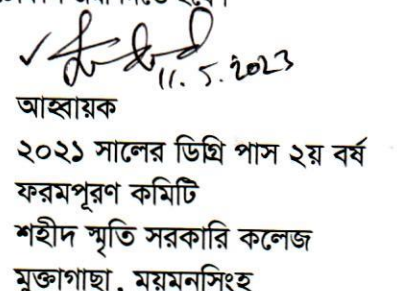 11.5.2023
আহ্বায়ক
২০২১ সালের ডিগ্রি পাস ২য় বর্ষ
ফরমপূরণ কমিটি
শহীদ স্মৃতি সরকারি কলেজ
মুক্তাগাছা, ময়মনসিংহ